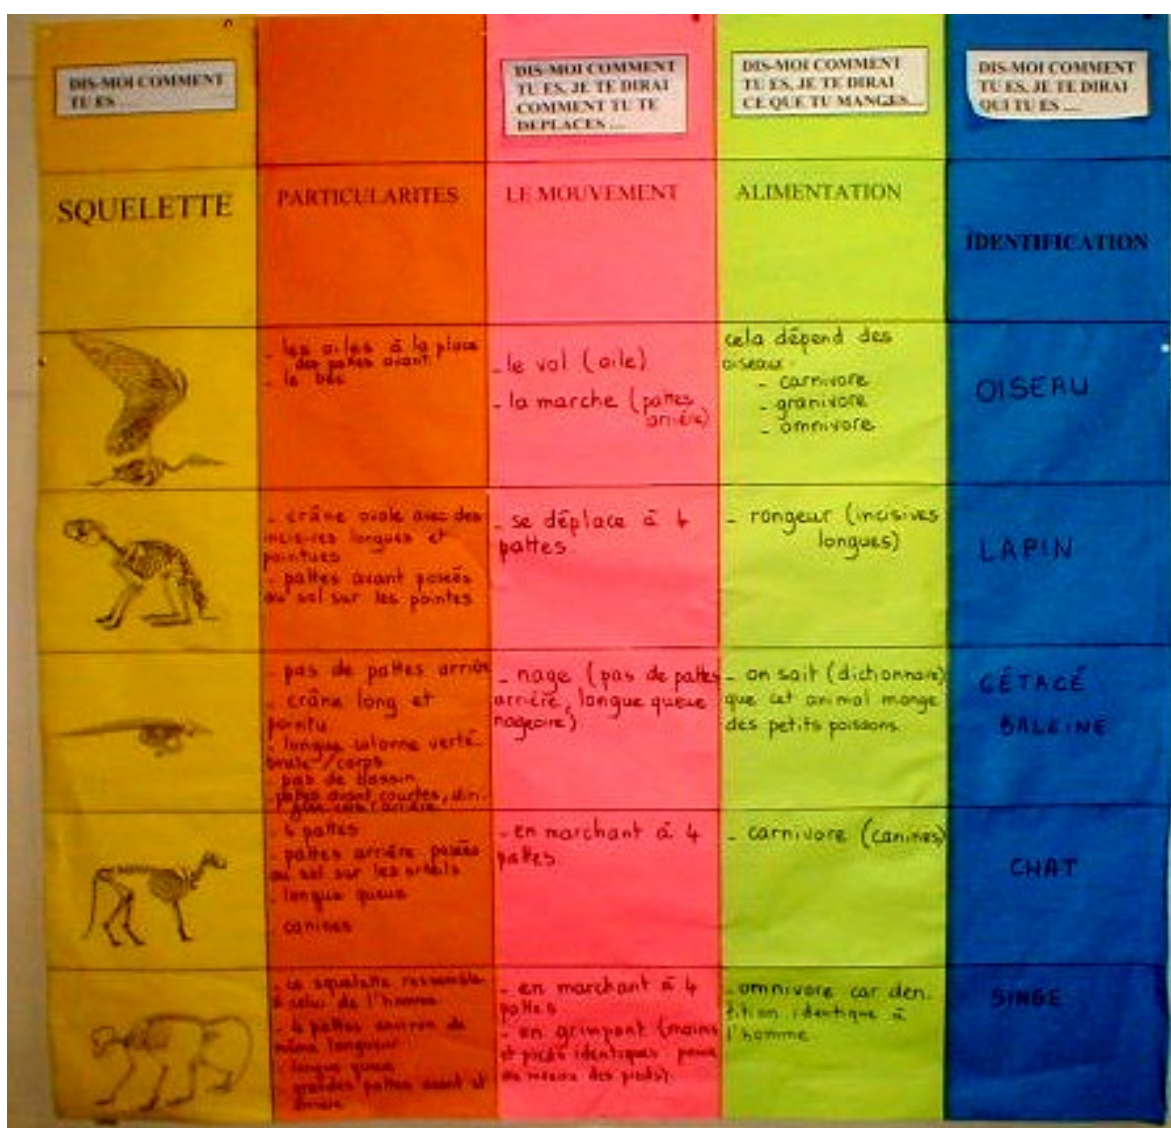 DIS-MOI COMMENT
TU ES
DIS-MOI COMMENT
TU ES, JE TE DIRAI
COMMENT TU TE
DEPLACES ....
DIS-MOI COMMENT
TU ES, JE TE DIRAI
CE QUE TU MANGES...
DIS-MOI COMMENT
TU ES, JE TE DIRAI
QUI TU ES ....
SQUELETTE
PARTICULARITES
LE MOUVEMENT
ALIMENTATION
IDENTIFICATION
- les ailes à la place
des pattes avant
- le bec
- le vol (aile)
- la marche (pattes
arrière)
cela dépend des
oiseaux.
- carnivore
- granivore
- omnivore
OISEAU
- crâne ovale avec des
incisives longues et
pointues
- pattes avant posées
au sol sur les pointes
- se déplace à 4
pattes
- rongeur (incisives
longues)
LAPIN
- pas de pattes arrière
- crâne long et
pointu
- longue colonne verté
brale / corps
- pas de bassin
- pattes avant courtes,
vers l'arrière
- nage (pas de pattes
arrière, longue queue
nageoire)
- on sait (dictionnaire)
que cet animal mange
des petits poissons
CÉTACÉ
BALEINE
- 4 pattes
- pattes arrière posées
au sol sur les orteils
- longue queue
- canines
- en marchant à 4
pattes
- carnivore (canines)
CHAT
- ce squelette ressemble
à celui de l'homme
- 4 pattes environ de
même longueur
- longue queue
grandes pattes avant et
arrière
- en marchant à 4
pattes
- en grimpant (mains
et pieds identiques pouce
au niveau des pieds).
- omnivore car den.
tition identique à
l'homme
SINGE